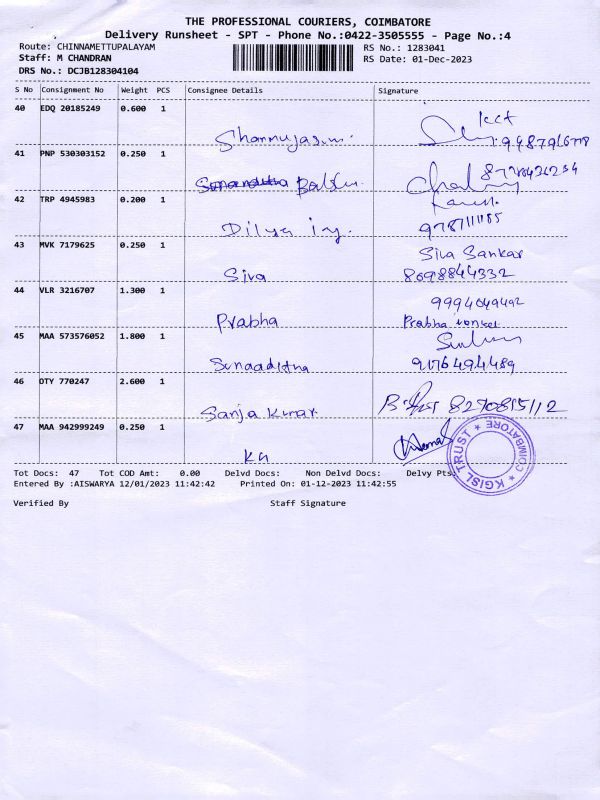 THE PROFESSIONAL COURIERS, COIMBATORE
Delivery Runsheet - SPT - Phone No.:0422-3505555 - Page No.:4
Route: CHINNAMETTUPALAYAM
RS No.: 1283041
Staff: M CHANDRAN
RS Date: 01-Dec-2023
DRS No.: DCJB128304104
S No Consignment No Weight PCS Consignee Details Signature
40 EDQ 20185249 0.600 1
41 PNP 530303152 0.250 1
Babu
42 TRP 4945983 0.200 1
43 MVK 7179625 0.250 1 Siva Sankar
Siva 8098844332
44 VLR 3216707 1.300 1 9994049492
Prabha Prabha
45 MAA 573576052 1.800 1
9176494489
46 OTY 770247 2.600 1
Sanja Kumar
47 MAA 942999249 0.250 1
KG
KGISL TRUST * COIMBATORE *
Tot Docs: 47 Tot COD Amt: 0.00 Delvd Docs: Non Delvd Docs: Delvy Pts:
Entered By :AISWARYA 12/01/2023 11:42:42 Printed On: 01-12-2023 11:42:55
Verified By Staff Signature